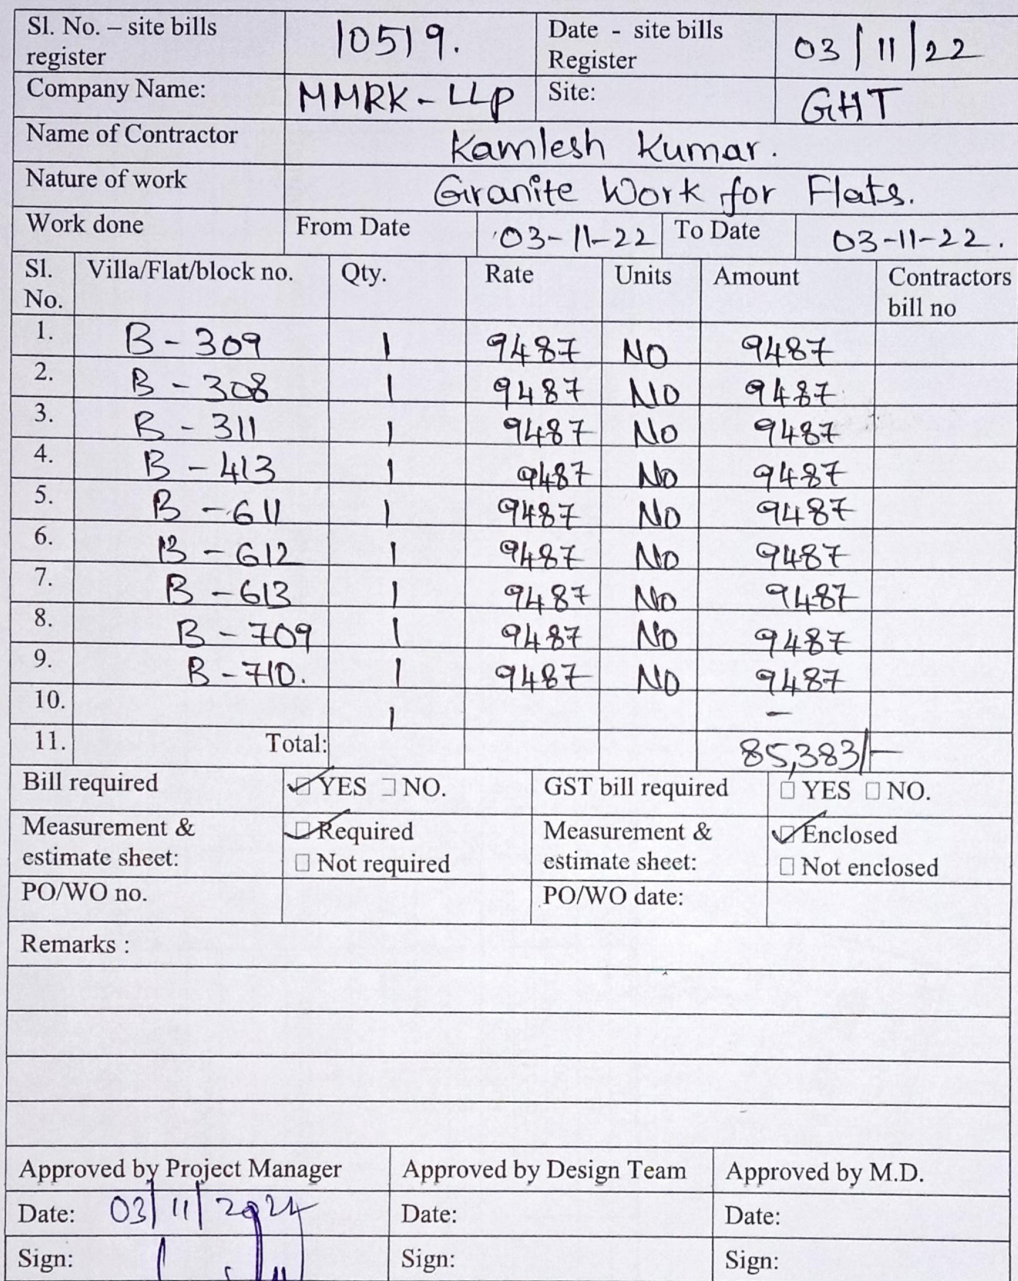 Sl. No. – site bills register 10519. Date - site bills Register 03/11/22
Company Name: MMRK-LLP Site: GHT
Name of Contractor Kamlesh Kumar.
Nature of work Granite Work for Flats.
Work done From Date 03-11-22 To Date 03-11-22.
Sl. No. Villa/Flat/block no. Qty. Rate Units Amount Contractors bill no
1. B-309 1 9487 NO 9487
2. B-308 1 9487 NO 9487
3. B-311 1 9487 No 9487
4. B-413 1 9487 No 9487
5. B-611 1 9487 No 9487
6. B-612 1 9487 No 9487
7. B-613 1 9487 No 9487
8. B-709 1 9487 No 9487
9. B-710. 1 9487 NO 9487
10. 1 –
11. Total: 85,383/-
Bill required YES NO. GST bill required YES NO.
Measurement & estimate sheet: Required Measurement & estimate sheet: Enclosed
Not required Not enclosed
PO/WO no. PO/WO date:
Remarks :
Approved by Project Manager Approved by Design Team Approved by M.D.
Date: 03/11/2024 Date: Date:
Sign: Sign: Sign: